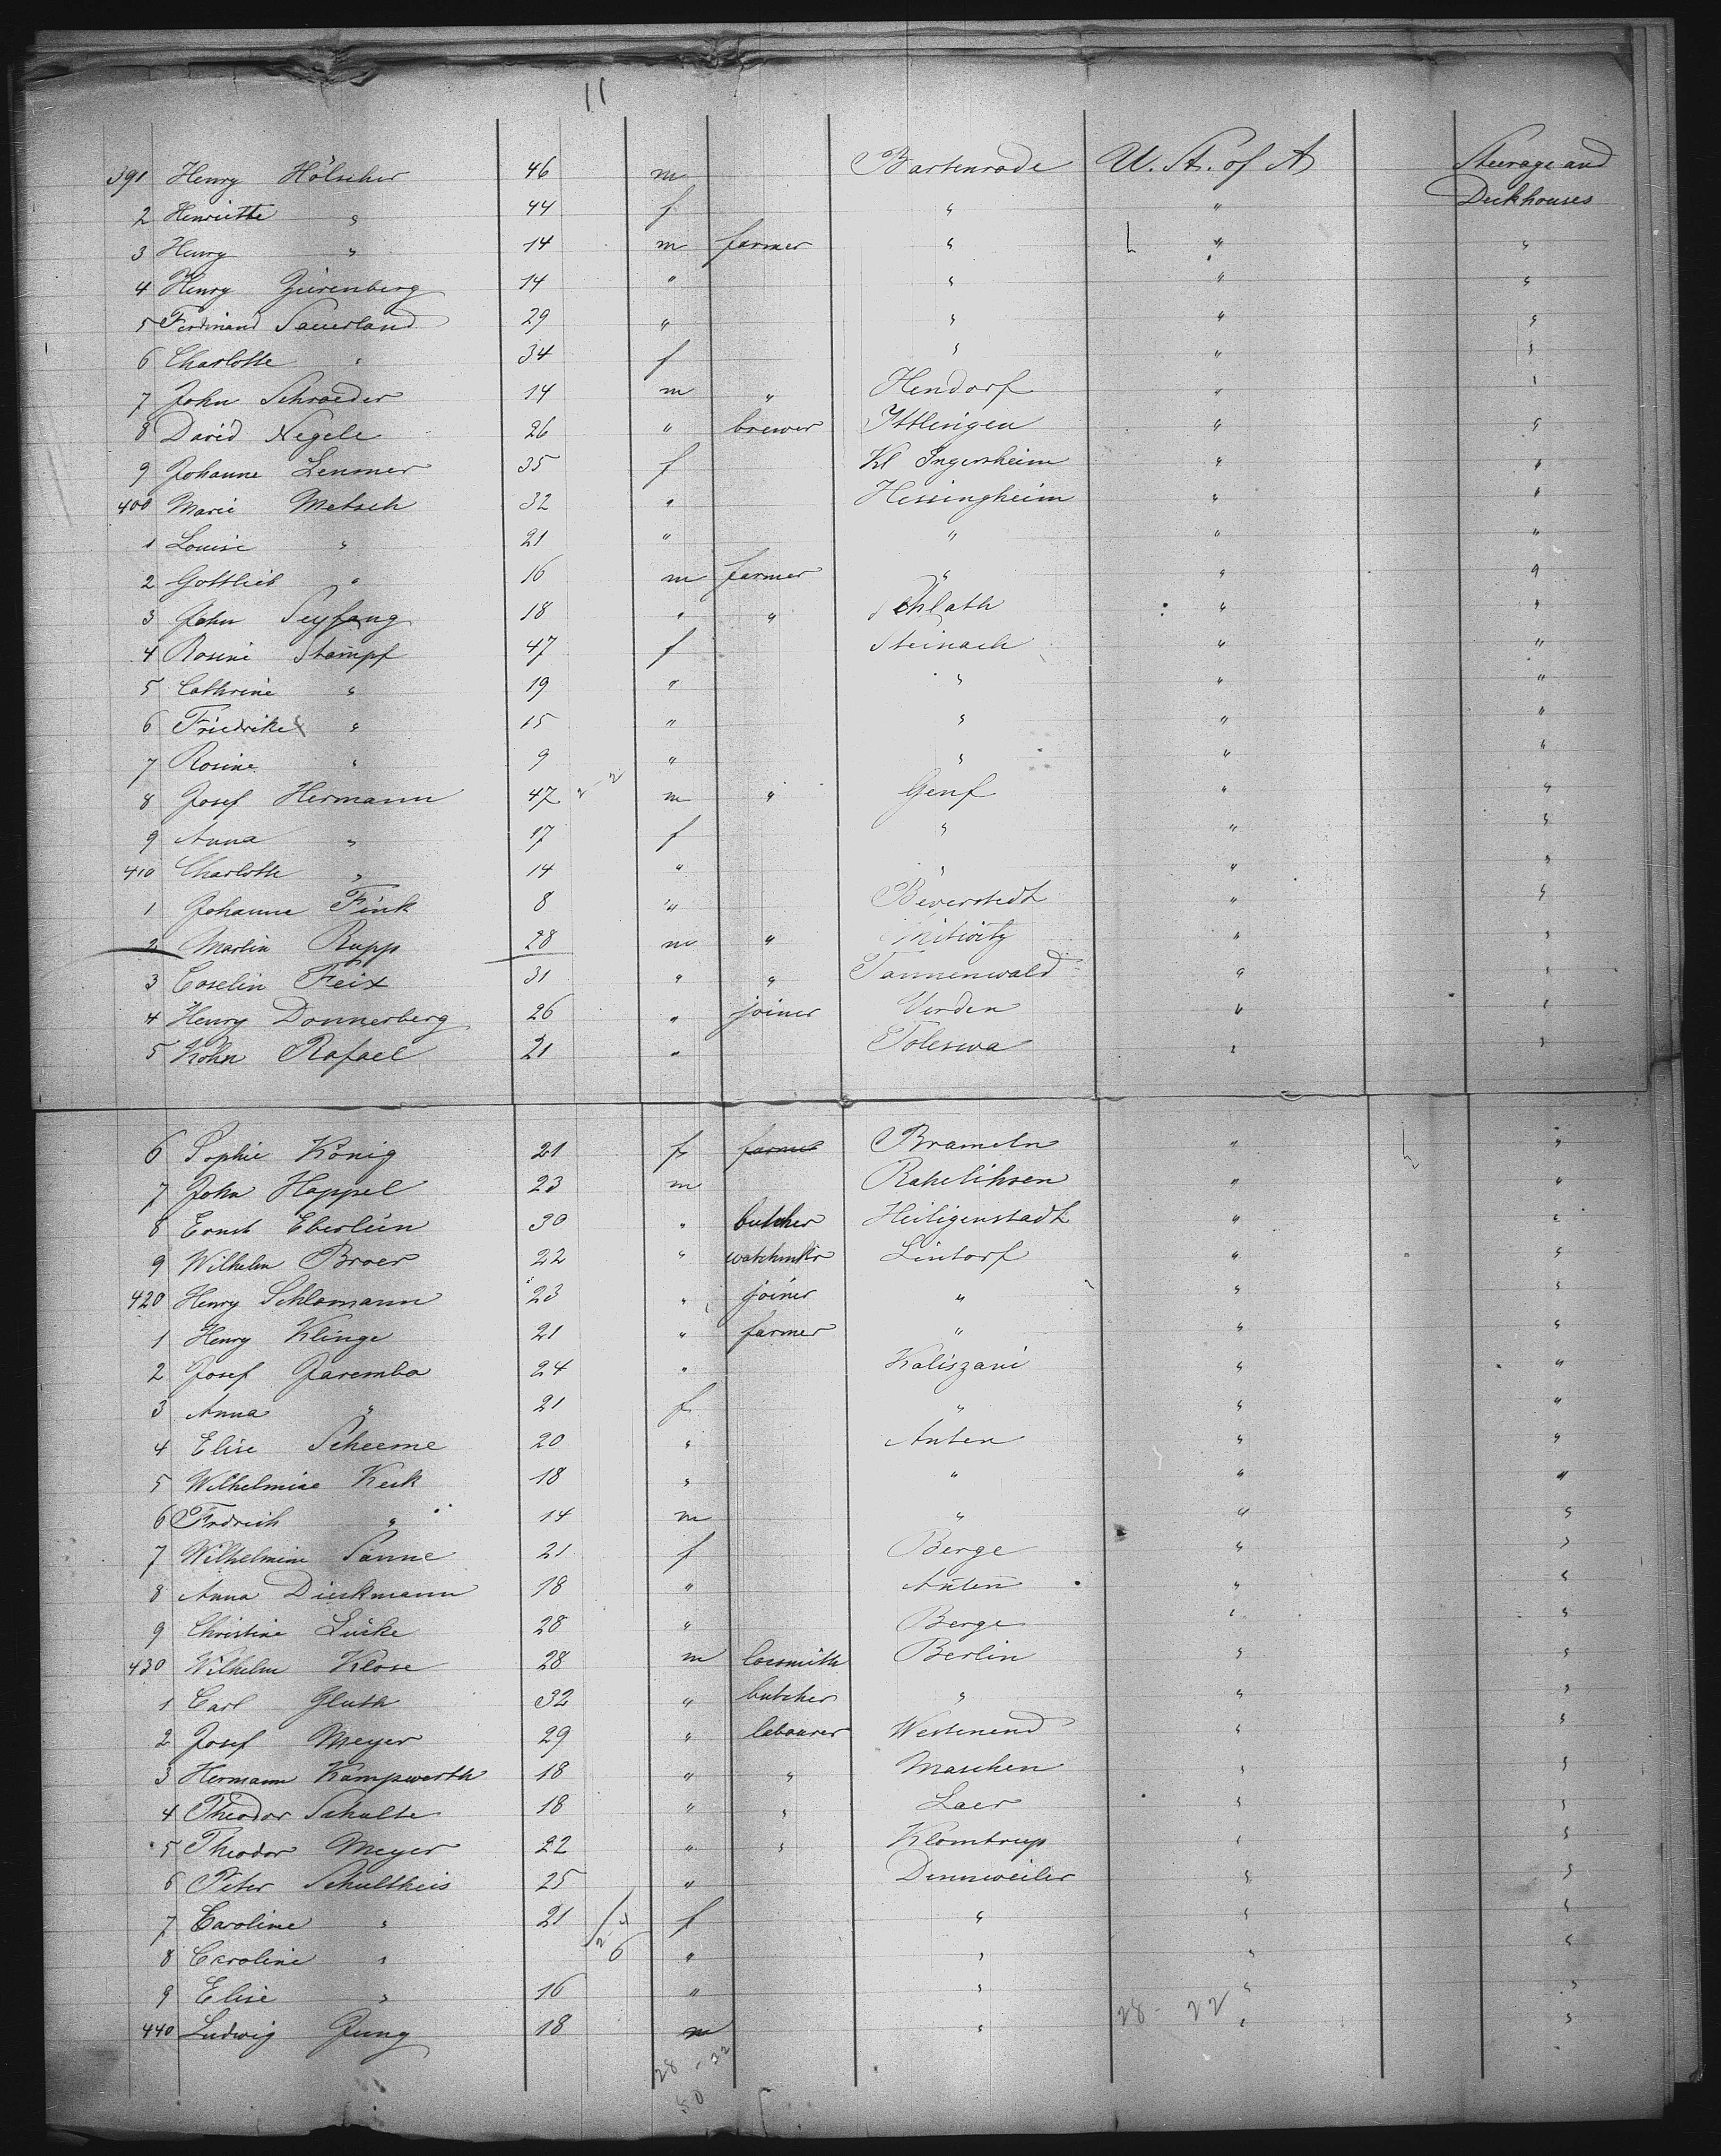 11
391 Henry Hölscher 46 m Bartenrode U. St. of A Steerage and
2 Henriette " 44 f " " Deckhouses
3 Henry " 14 m farmer " " "
4 Henry Zürenberg 14 " " " "
5 Ferdinand Sauerland 29 " " " "
6 Charlotte " 34 f " " "
7 John Schroeder 14 m " Hendorf " "
8 David Negele 26 " brewer Ittlingen " "
9 Johanne Lemmer 35 f Kl Ingersheim " "
400 Marie Metsch 32 " Hessingheim " "
1 Louise " 21 " " " "
2 Gottlieb " 16 m farmer " " "
3 John Seyfang 18 " " Schlath " "
4 Rosine Stampf 47 f Steinach " "
5 Cathrine " 19 " " " "
6 Friedrike " 15 " " " "
7 Rosine " 9 " " " "
8 Josef Hermann 47 m " Genf " "
9 Anna " 17 f " " "
410 Charlotte " 14 " " " "
1 Johanne Fink 8 " Beverstedt " "
2 Martin Rupp 28 m " " "
3 Coselin Feix 31 " " Tannenwald " "
4 Henry Donnerberg 26 " joiner Verden " "
5 Kohn Rafael 21 " Toleswa " "
6 Sophie König 21 f farmer Brameln " "
7 John Happel 23 m Rahelihsen " "
8 Ernst Eberlein 30 " butcher Heiligenstadt " "
9 Wilhelm Broer 22 " watchmkr Lintorf " "
420 Henry Schlomann 23 " joiner " " "
1 Henry Klinge 21 " farmer " " "
2 Josef Jaremba 24 " Kaliszani " "
3 Anna " 21 f " " "
4 Elise Scheeme 20 " Anten " "
5 Wilhelmine Keck 18 " " " "
6 Frdrich " 14 m " " "
7 Wilhelmine Sanne 21 f Berge " "
8 Anna Dieckmann 18 " Anten " "
9 Christine Lücke 28 " Berge " "
430 Wilhelm Klose 28 m locsmith Berlin " "
1 Carl Gluth 32 " butcher " " "
2 Josef Meyer 29 " labourer Westenend " "
3 Hermann Kampwerth 18 " " Maschen " "
4 Theodor Schulte 18 " " Laer " "
5 Theodor Meyer 22 " " Klomtrup " "
6 Peter Schultheis 25 " Dennweiler " "
7 Caroline " 21 f " " "
8 Caroline " 6 " " " "
9 Elise " 16 " " " "
440 Ludwig Jung 18 m " " "
28 - 22
28 - 22
50